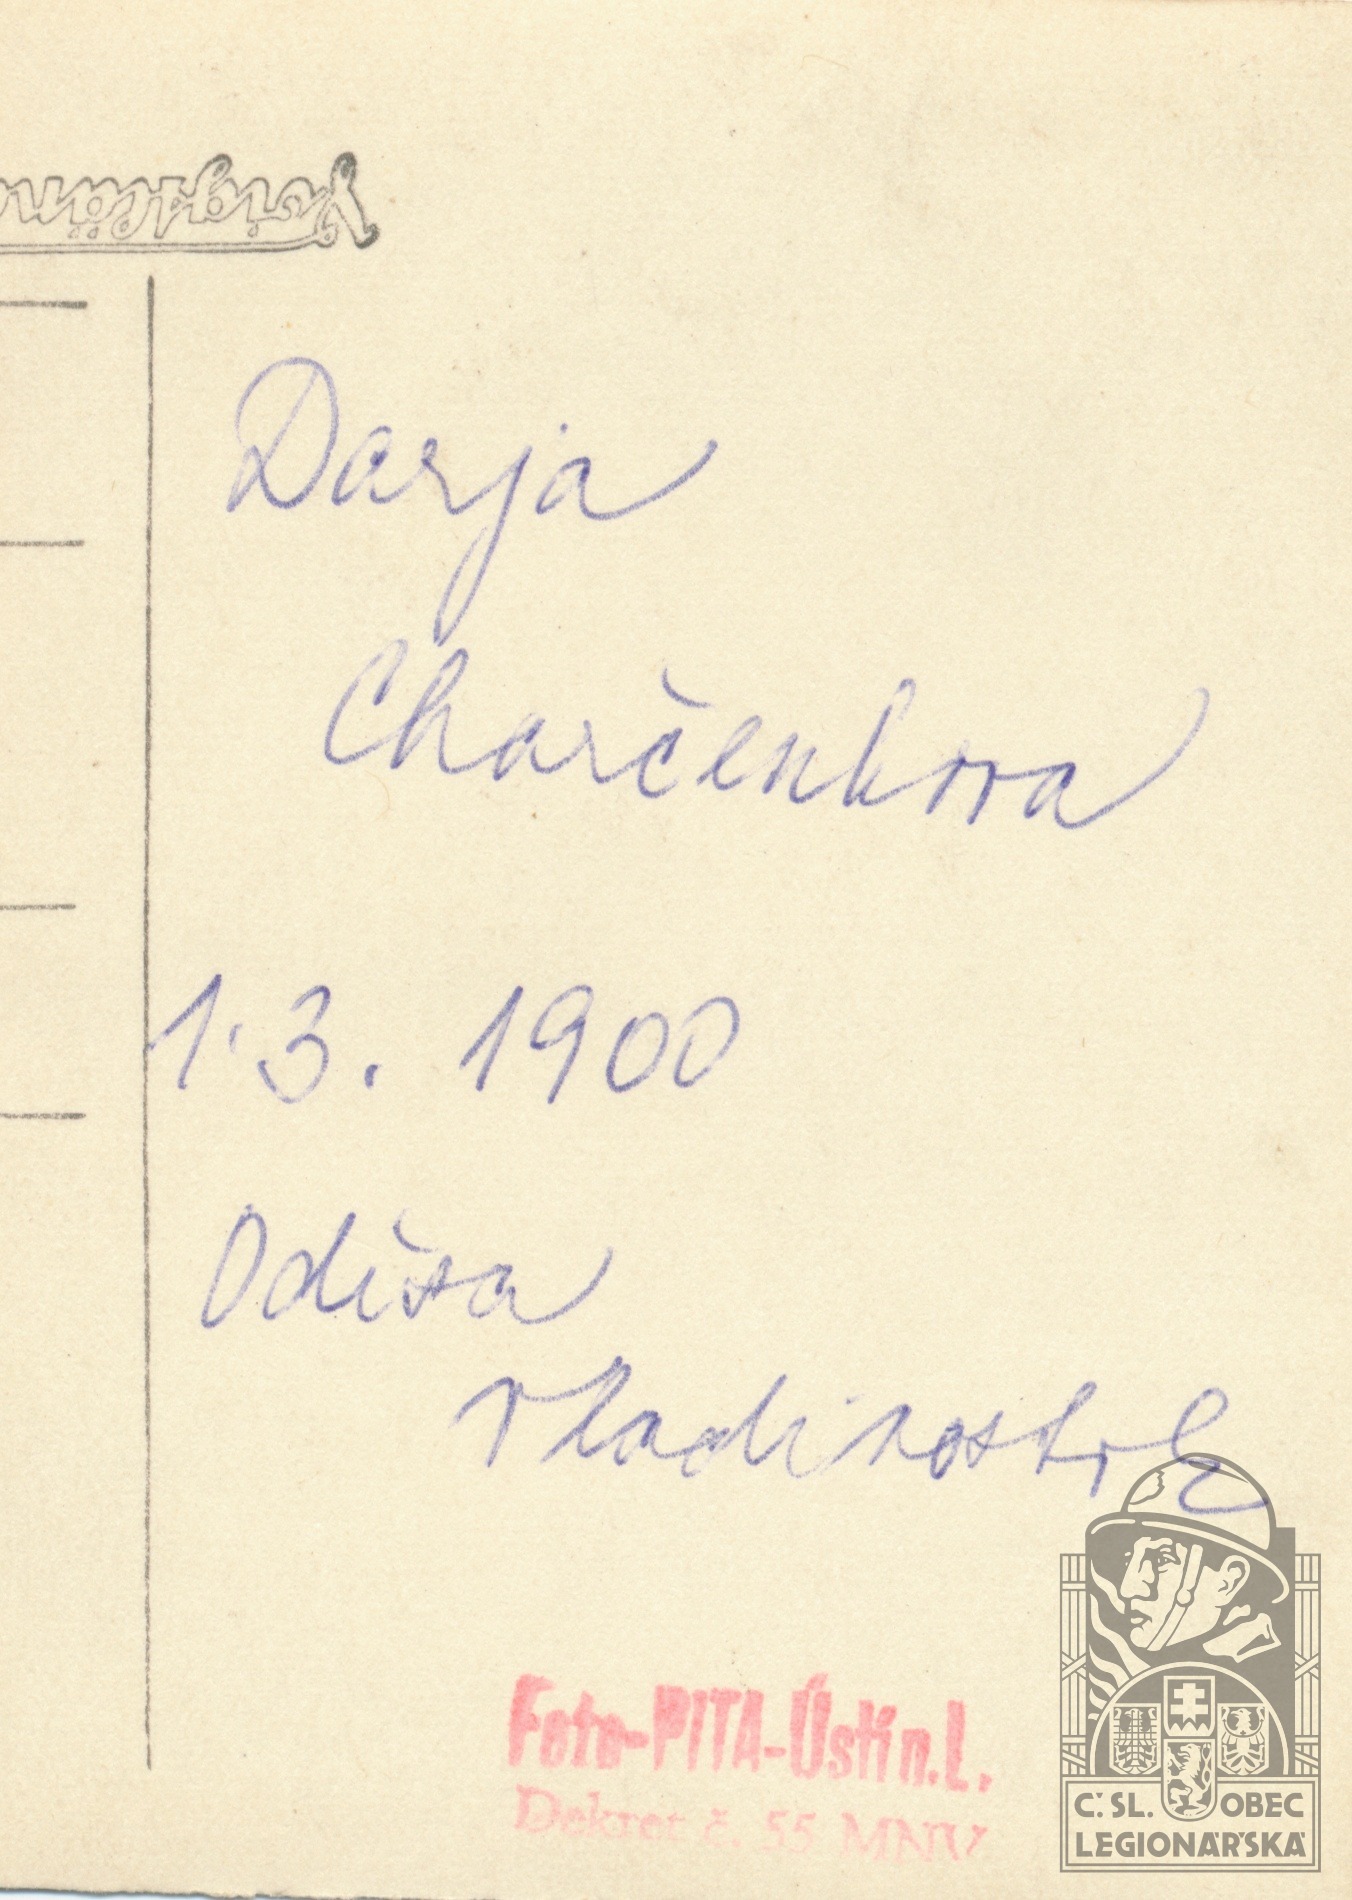 Voigtländ
Darja
Charčenkova
1.3. 1900
Oděsa
Vladivostok
Foto-PITA-Ústí n. L.
Dekret č. 55 MNV
Č.SL. OBEC
LEGIONÁŘSKÁ